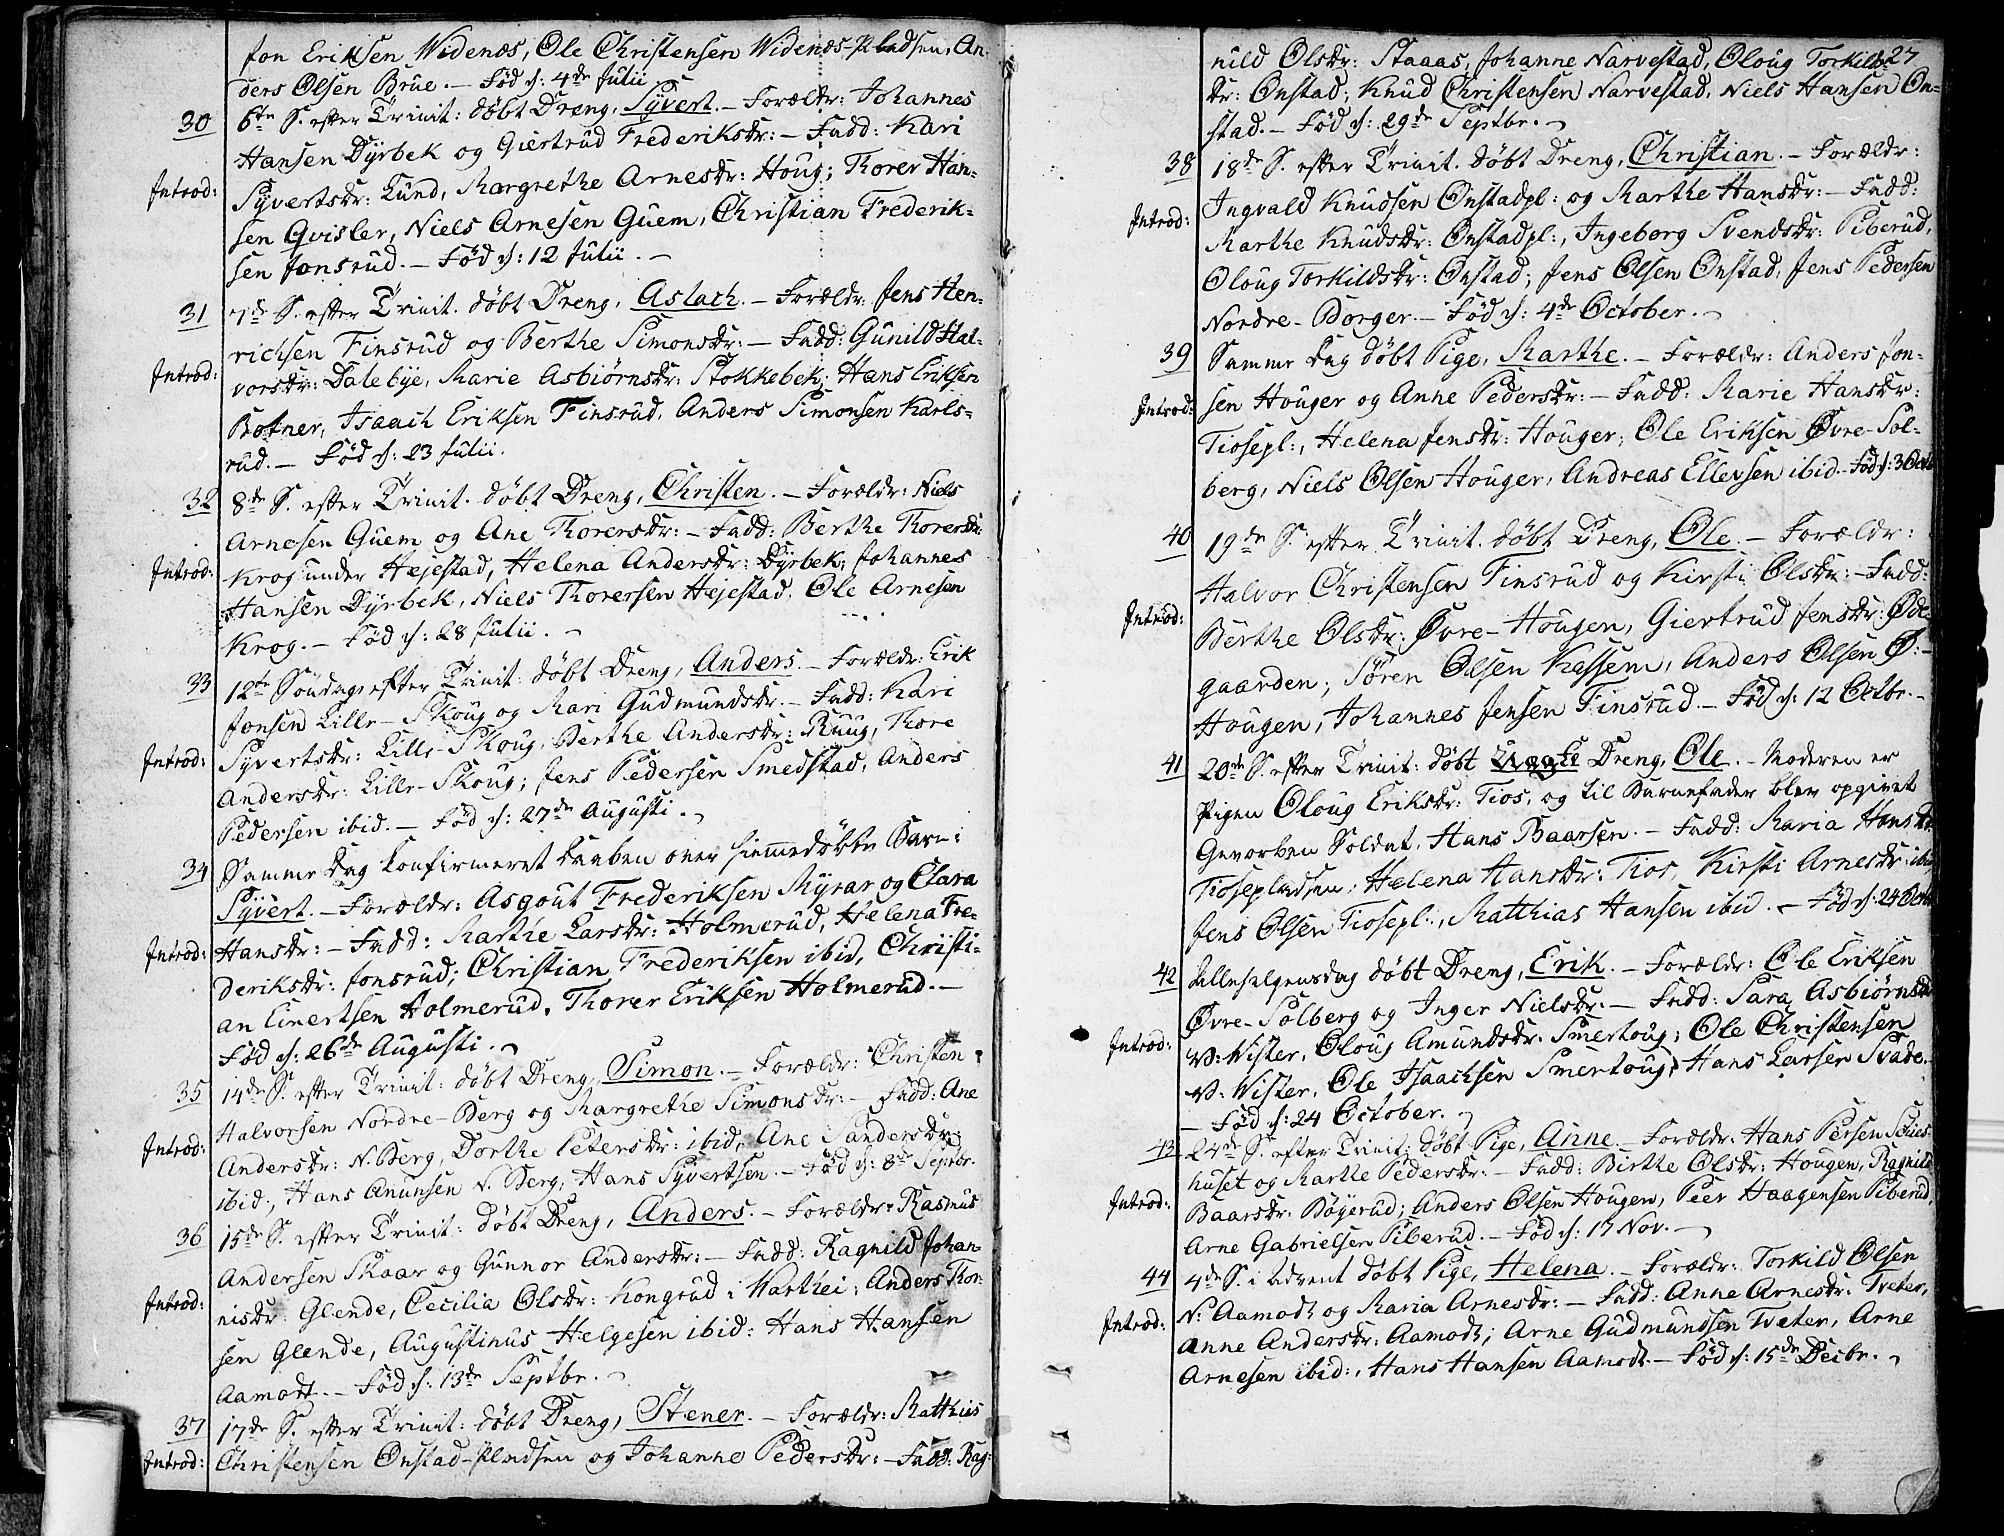 Jon Eriksen Widenæs, Ole Christensen Widenæs-Pladsen, An-
ders Olsen Brue. — Fød d: 4de Julii
30 6te S. efter Trinit: døbt Dreng, Syvert. — Forældr: Johannes
Hansen Dyrbek og Giertrud Frederiksdr: — Fadd: Kari
Introd: Syvertsdr: Lund, Margrethe Arnesdr: Houg; Thorer Han-
sen Qvisler, Niels Arnesen Guem, Christian Frederik-
sen Jonsrud. — Fød d: 12 Julii. —
31 7de S. efter Trinit. døbt Dreng, Aslach. — Forældr: Jens Hen-
richsen Finsrud og Berthe Simonsdr: — Fadd: Gunild Hal-
Introd: vorsdr: Dalebye, Marie Asbiørnsdr: Stokkebek; Hans Eriksen
Botner, Isaach Eriksen Finsrud, Anders Simonsen Karls-
rud. — Fød d: 23 Julii.
32 8de S. efter Trinit. døbt Dreng, Christen. — Forældr: Niels
Arnesen Guem og Ane Thorersdr: — Fadd: Berthe Thorersdr:
Introd: Krog under Hejestad, Helena Andersdr: Dyrbek; Johannes
Hansen Dyrbek, Niels Thorersen Hejestad, Ole Arnesen
Krog. — Fød d: 28 Julii. —
33 12te Søndag efter Trinit: døbt Dreng, Anders. — Forældr: Erik
Jonsen Lille-Skoug og Mari Gudmundsdr. — Fadd: Kari
Introd: Syvertsdr: Lille-Skoug, Berthe Andersdr: Ruug, Thore
Andersdr: Lille-Skoug; Jens Pedersen Smedstad, Anders
Pedersen ibid. — Fød d: 27de Augusti. —
34 Samme Dag Confirmeret Daaben over hiemmedøbte Barn:
Syvert. — Forældr: Asgout Frederiksen Myrar og Clara
Introd: Hansdr: — Fadd: Marthe Larsdr: Holmerud, Helena Fre-
deriksdr: Jonsrud; Christian Frederiksen ibid, Christi-
an Einertsen Holmerud, Thorer Eriksen Holmerud. —
Fød d: 26de Augusti. —
35 14de S. efter Trinit: døbt Dreng, Simon. — Forældr: Christen
Halvorsen Nordre-Berg og Margrethe Simonsdr: — Fadd: Ane
Introd: Andersdr: N. Berg, Dorthe Petersdr: ibid, Ane Sandersdr:
ibid; Hans Anunsen N. Berg, Hans Syvertsen. — Fød d: 8de Septbr.
36 15de S. efter Trinit: døbt Dreng, Anders. — Forældr: Rasmus
Andersen Skaar og Gunnor Andersdr: — Fadd: Ragnild Johan-
Introd: nisdr: Glende, Cecilia Olsdr: Kongrud i Warthei; Anders Thor-
sen Glende, Augustinus Helgesen ibid: Hans Hansen
Aamodt. — Fød d: 13de Septbr. —
37 17de S. efter Trinit: døbt Dreng, Stener. — Forældr: Matthis
Introd: Christensen Onstad-Pladsen og Johanne Pedersdr: — Fadd: Rag-
27
nild Olsdr: Staaas, Johanne Narvestad, Oloug Torkilds-
dr: Onstad; Knud Christensen Narvestad, Niels Hansen On-
stad. — Fød d: 29de Septbr. —
38 18de S. efter Trinit. døbt Dreng, Christian. — Forældr:
Introd: Ingvald Knudsen Onstadpl: og Marthe Hansdr: — Fadd:
Marthe Knudsdr: Onstadpl:, Ingeborg Svendsdr: Piberud,
Oloug Torkildsdr: Onstad; Jens Olsen Onstad, Jens Pedersen
Nordre-Borger. — Fød d: 4de October. —
39 Samme Dag døbt Pige, Marthe. — Forældr: Anders Jon-
Introd: sen Houger og Anne Pedersdr: — Fadd: Marie Hansdr:
Tiosepl:, Helena Jensdr: Houger; Ole Eriksen Øvre-Sol-
berg, Niels Olsen Houger, Andreas Ellevsen ibid. — Fød d: 3 Octb
40 19de S. efter Trinit. døbt Dreng, Ole. — Forældr:
Halvor Christensen Finsrud og Kirsti Olsdr: — Fadd:
Introd: Berthe Olsdr: Øvre-Hougen, Giertrud Jensdr: Øde-
gaarden; Søren Olsen Kassem, Anders Olsen Ø: —
Hougen, Johannes Jensen Finsrud — Fød d: 12 Octbr. —
41 20de S. efter Trinit: døbt Uægte Dreng, Ole. — Moderen er
Pigen Oloug Eriksdr: Tios, og til Barnefader blev opgivet
Gevorben Soldat, Hans Baarsen. — Fadd: Maria Hansdr:
Tiosepladsen, Helena Hansdr: Tios, Kirsti Arnesdr: ibid
Jens Olsen Tiosepl:, Matthias Hansen ibid. — Fød d: 24 Octb
42 Allehelgensdag døbt Dreng, Erik. — Forældr: Ole Eriksen
Øvre-Solberg og Inger Nielsdr: — Fadd: Sara Asbiørnsdr
Introd: V: Wister, Oloug Amundsdr: Smertoug; Ole Christensen
V: Wister, Ole Isaachsen Smertoug, Hans Larsen Svade.
— Fød d: 24 October. —
43 24de S. efter Trinit: døbt Pige, Anne. — Forældr: Hans Persen
huset og Marthe Pedersdr: — Fadd: Birthe Olsdr: Hougen, Ragnild
Introd: Baarsdr: Bøyerud; Anders Olsen Hougen, Peer Haagensen Piberud,
Arne Gabrielsen Piberud. — Fød d: 17 Nov. —
44 4de S. i Advent døbt Pige, Helena. — Forældr: Torkild Olsen
N: Aamodt og Maria Arnesdr: — Fadd: Anne Arnesdr: Tveter,
Introd: Anne Andersdr: Aamodt; Arne Gudmundsen Tveter, Arne
Arnesen ibid:, Hans Hansen Aamodt — Fød d: 15de Decbr. —